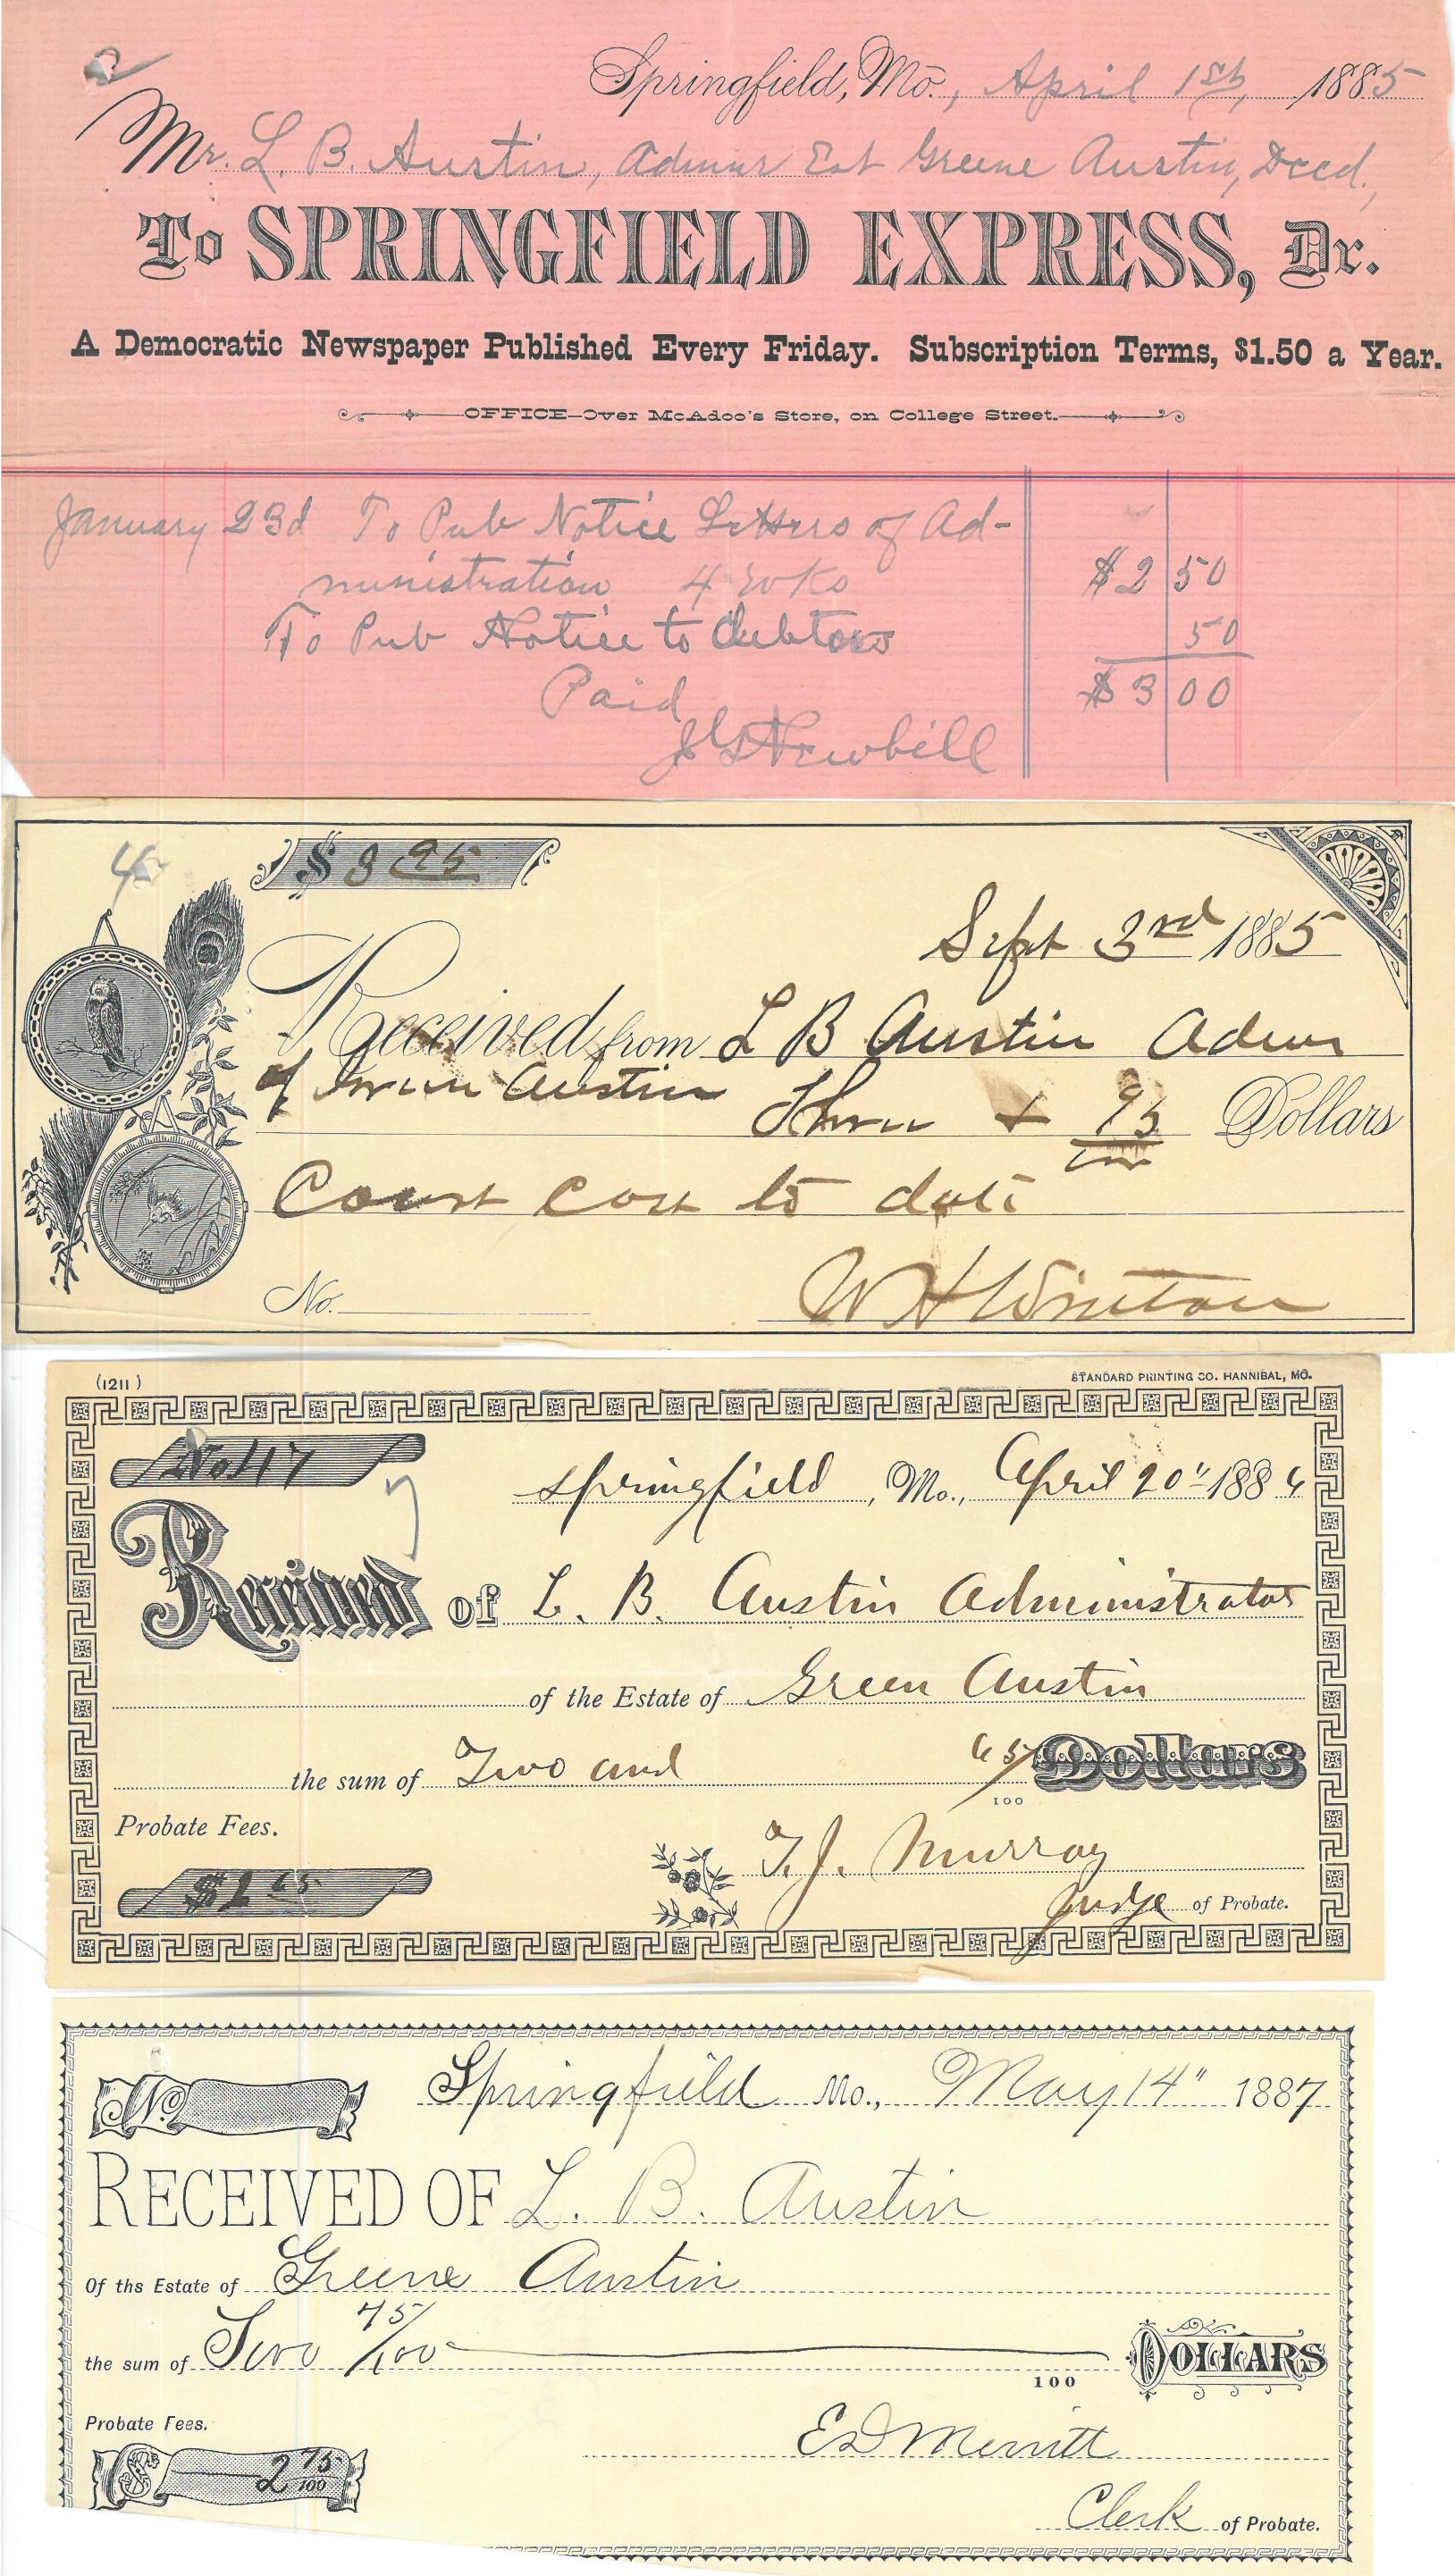 2
Springfield, Mo., April 1st, 1885
Mr. L. B. Austin, Admnr Est Greene Austin, Decd.,
To SPRINGFIELD EXPRESS, Dr.
A Democratic Newspaper Published Every Friday. Subscription Terms, $1.50 a Year.
OFFICE—Over McAdoo's Store, on College Street.
January 23d To Pub Notice Letters of Ad-
ministration 4 wks $2 50
To Pub Notice to debtors 50
Paid $3 00
J G Newbill
$ 3 95
Sept 3rd 1885
Received from L B Austin Admr
of Green Austin Three + 95 Dollars
Court cost to date
No.
W H Winton
(1211)
STANDARD PRINTING CO. HANNIBAL, MO.
No 117
Springfield, Mo., April 20" 1886
Received of L. B. Austin Administrator
of the Estate of Green Austin
the sum of Two and 65/100 Dollars
Probate Fees.
T. J. Murray
$2 65
Judge of Probate.
No.
Springfield Mo., May 14" 1887
RECEIVED OF L. B. Austin
Of ths Estate of Greene Austin
the sum of Two 75/100 100 DOLLARS
Probate Fees.
E D Merritt
$ 2 75/100
Clerk of Probate.